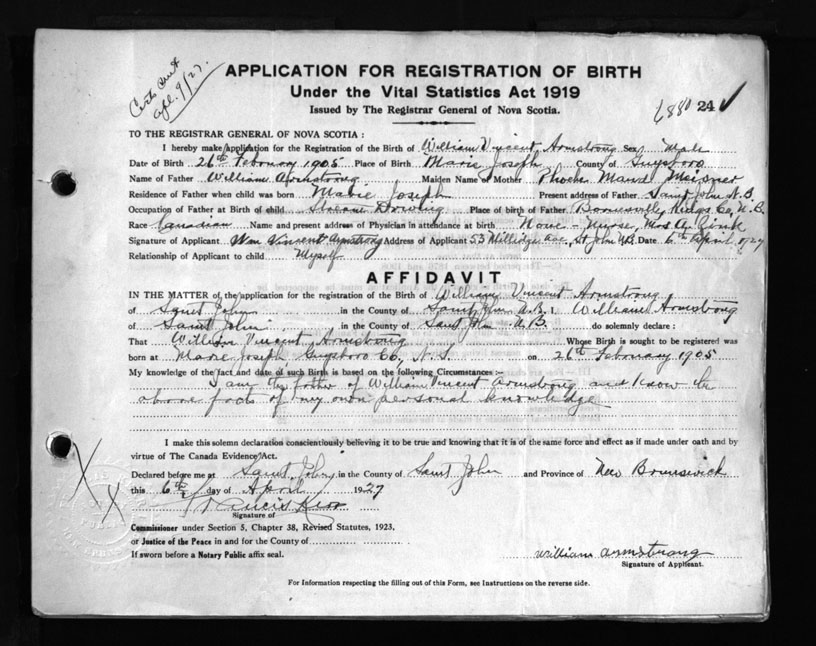 Certs Sent
apl. 9/27.
APPLICATION FOR REGISTRATION OF BIRTH
Under the Vital Statistics Act 1919
Issued by The Registrar General of Nova Scotia.
6880 24
TO THE REGISTRAR GENERAL OF NOVA SCOTIA :
I hereby make application for the Registration of the Birth of William Vincent Armstrong Sex Male
Date of Birth 26th February 1905 Place of Birth Marie Joseph County of Guysboro
Name of Father William Armstrong Maiden Name of Mother Phoebe Maud Meisner
Residence of Father when child was born Marie Joseph Present address of Father Saint John N.B.
Occupation of Father at Birth of child Place of birth of Father Kings Co, N.B.
Race Canadian Name and present address of Physician in attendance at birth None - Nurse, Mrs A.
Signature of Applicant Wm Vincent Armstrong Address of Applicant 53 Millidge Ave, St John NB. Date 6th April 1927
Relationship of Applicant to child Myself
AFFIDAVIT
IN THE MATTER of the application for the registration of the Birth of William Vincent Armstrong
of Saint John in the County of Saint John N.B. I, William Armstrong
of Saint John in the County of Saint John N.B. do solemnly declare :
That William Vincent Armstrong Whose Birth is sought to be registered was
born at Marie Joseph Guysboro Co, N.S. on 26th February 1905
My knowledge of the fact and date of such Birth is based on the following Circumstances :—
I am the father of William Vincent Armstrong and know the
above facts of my own personal knowledge
I make this solemn declaration conscientiously believing it to be true and knowing that it is of the same force and effect as if made under oath and by
virtue of The Canada Evidence Act.
Declared before me at Saint John in the County of Saint John and Province of New Brunswick
this 6th day of April 1927
Francis Kerr
Signature of
Commissioner under Section 5, Chapter 38, Revised Statutes, 1923.
or Justice of the Peace in and for the County of
If sworn before a Notary Public affix seal.
William Armstrong
Signature of Applicant.
For Information respecting the filling out of this Form, see Instructions on the reverse side.